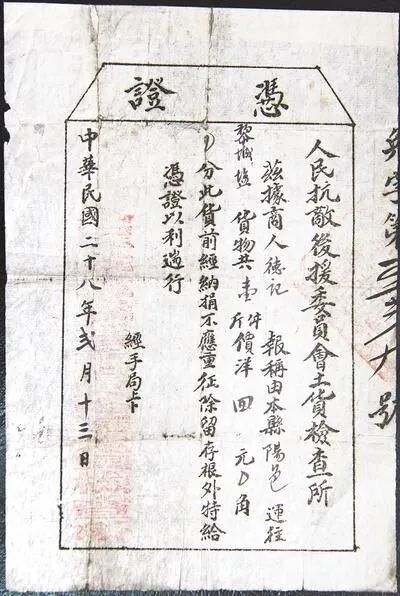 憑證
人民抗敵後援委員會土貨檢查所
茲據商人德記 報稱由本縣陽邑 運往
黎城 貨物共壹件 斤價洋四元 角
分此貨前經納捐不應重征除留存根外特給
憑證以利遄行
經手局卡
中華民國二十八年弍月十三日
字第 號